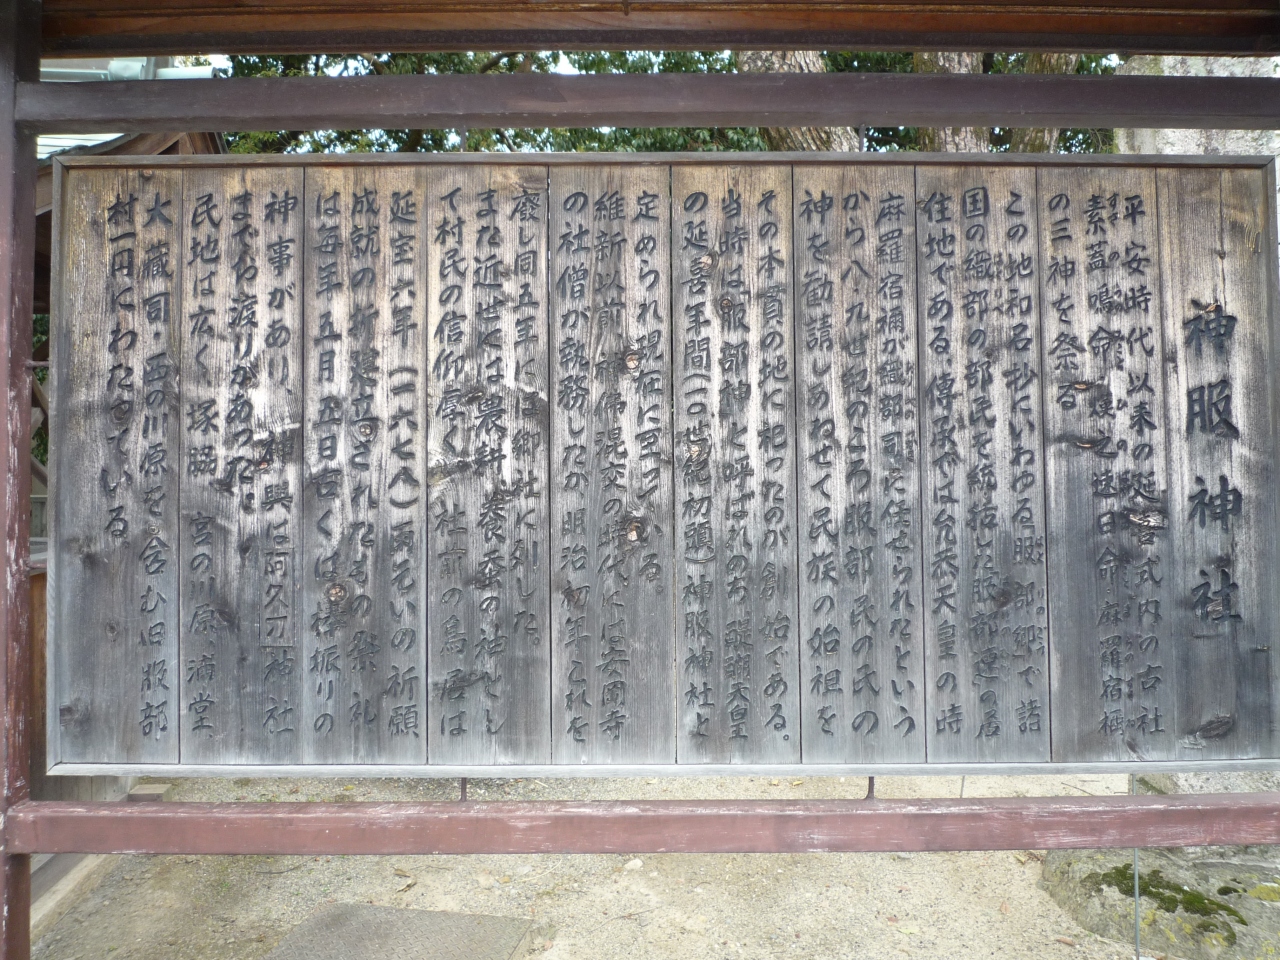 神服神社
平安時代以来の延喜式内の古社
素蓋鳴命 熯之速日命 麻羅宿祢
の三神を祭る
この地は和名抄にいわゆる服部郷で諸
国の織部の部民を統括した服部連の居
住地である。傳承では允恭天皇の時
麻羅宿禰が織部司に任ぜられたという
から八・九世紀のころ服部氏の氏の
神を勧請しあわせて民族の始祖を
その本貫の地に祀ったのが創始である。
当時は服部神と呼ばれのち醍醐天皇
の延喜年間(一〇世紀初頭)神服神社と
定められ現在に至っている。
維新以前神佛混交の時代には安閑寺
の社僧が執務したが明治初年これを
廃し同五年には郷社に列した。
また近世では農耕・養蚕の神とし
て村民の信仰厚く社前の鳥居は
延宝六年(一六七八)雨乞いの祈願
成就の折建立されたもの 祭礼
は毎年五月五日古くは神振りの
神事があり、神輿は阿久刀神社
までお渡りがあった。
民地は広く塚脇 宮の川原 浦堂
大蔵司・西の川原を含む旧服部
村一円にわたっている